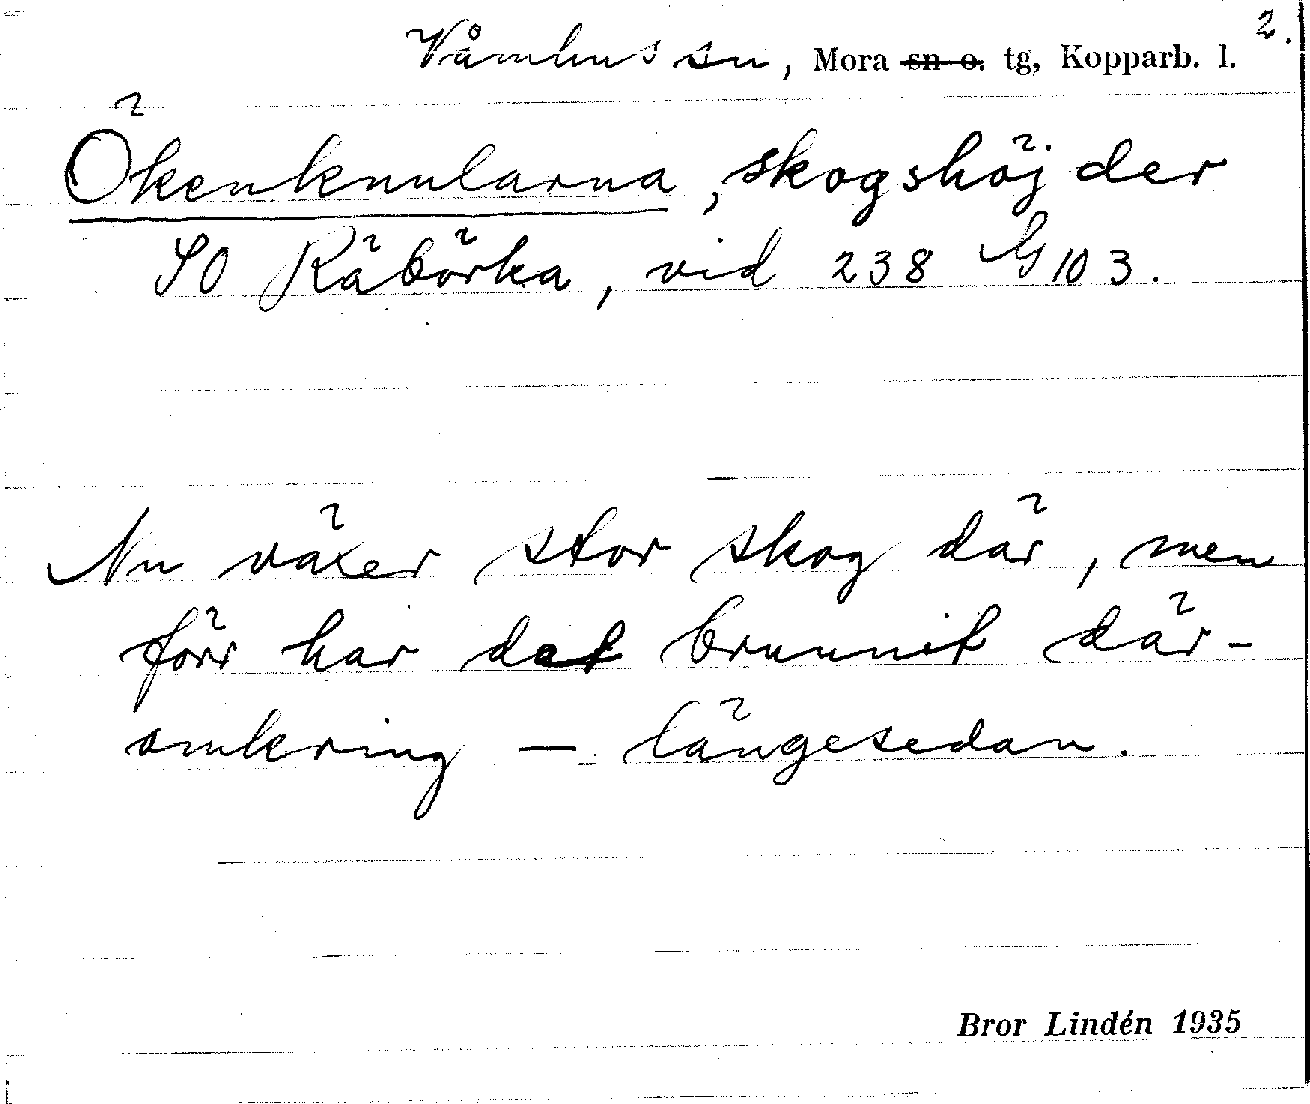 2.
Våmhus sn, Mora sn o. tg, Kopparb. l.
Ökenknularna, skogshöjder
SO Räbörka, vid 238 G 103.
Nu växer stor skog där, men
förr har det brunnit där-
omkring — längesedan.
Bror Lindén 1935